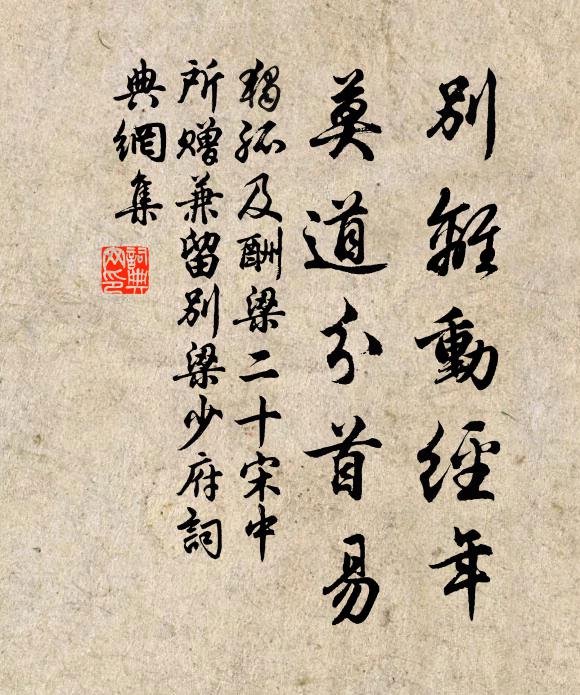 別離動經年
莫道分首易
獨孤及酬梁二十宋中
所贈兼留別梁少府詞
典網集
詞典網印